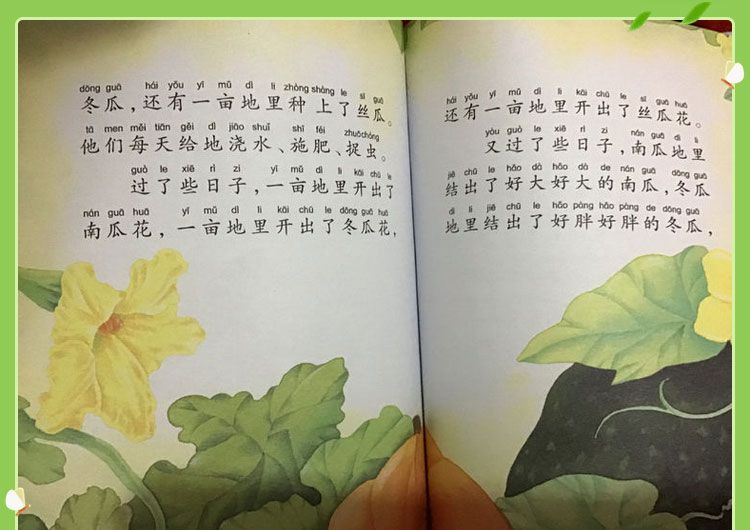 dōng guā hái yǒu yī mǔ dì li zhòng shàng le sī guā
冬瓜，还有一亩地里种上了丝瓜。
tā men měi tiān gěi dì jiāo shuǐ shī féi zhuō chóng
他们每天给地浇水、施肥、捉虫。
guò le xiē rì zi yī mǔ dì li kāi chū le
过了些日子，一亩地里开出了
nán guā huā yī mǔ dì li kāi chū le dōng guā huā
南瓜花，一亩地里开出了冬瓜花，
hái yǒu yī mǔ dì li kāi chū le sī guā huā
还有一亩地里开出了丝瓜花。
yòu guò le xiē rì zi nán guā dì li
又过了些日子，南瓜地里
jiē chū le hǎo dà hǎo dà de nán guā dōng guā
结出了好大好大的南瓜，冬瓜
dì li jiē chū le hǎo pàng hǎo pàng de dōng guā
地里结出了好胖好胖的冬瓜，